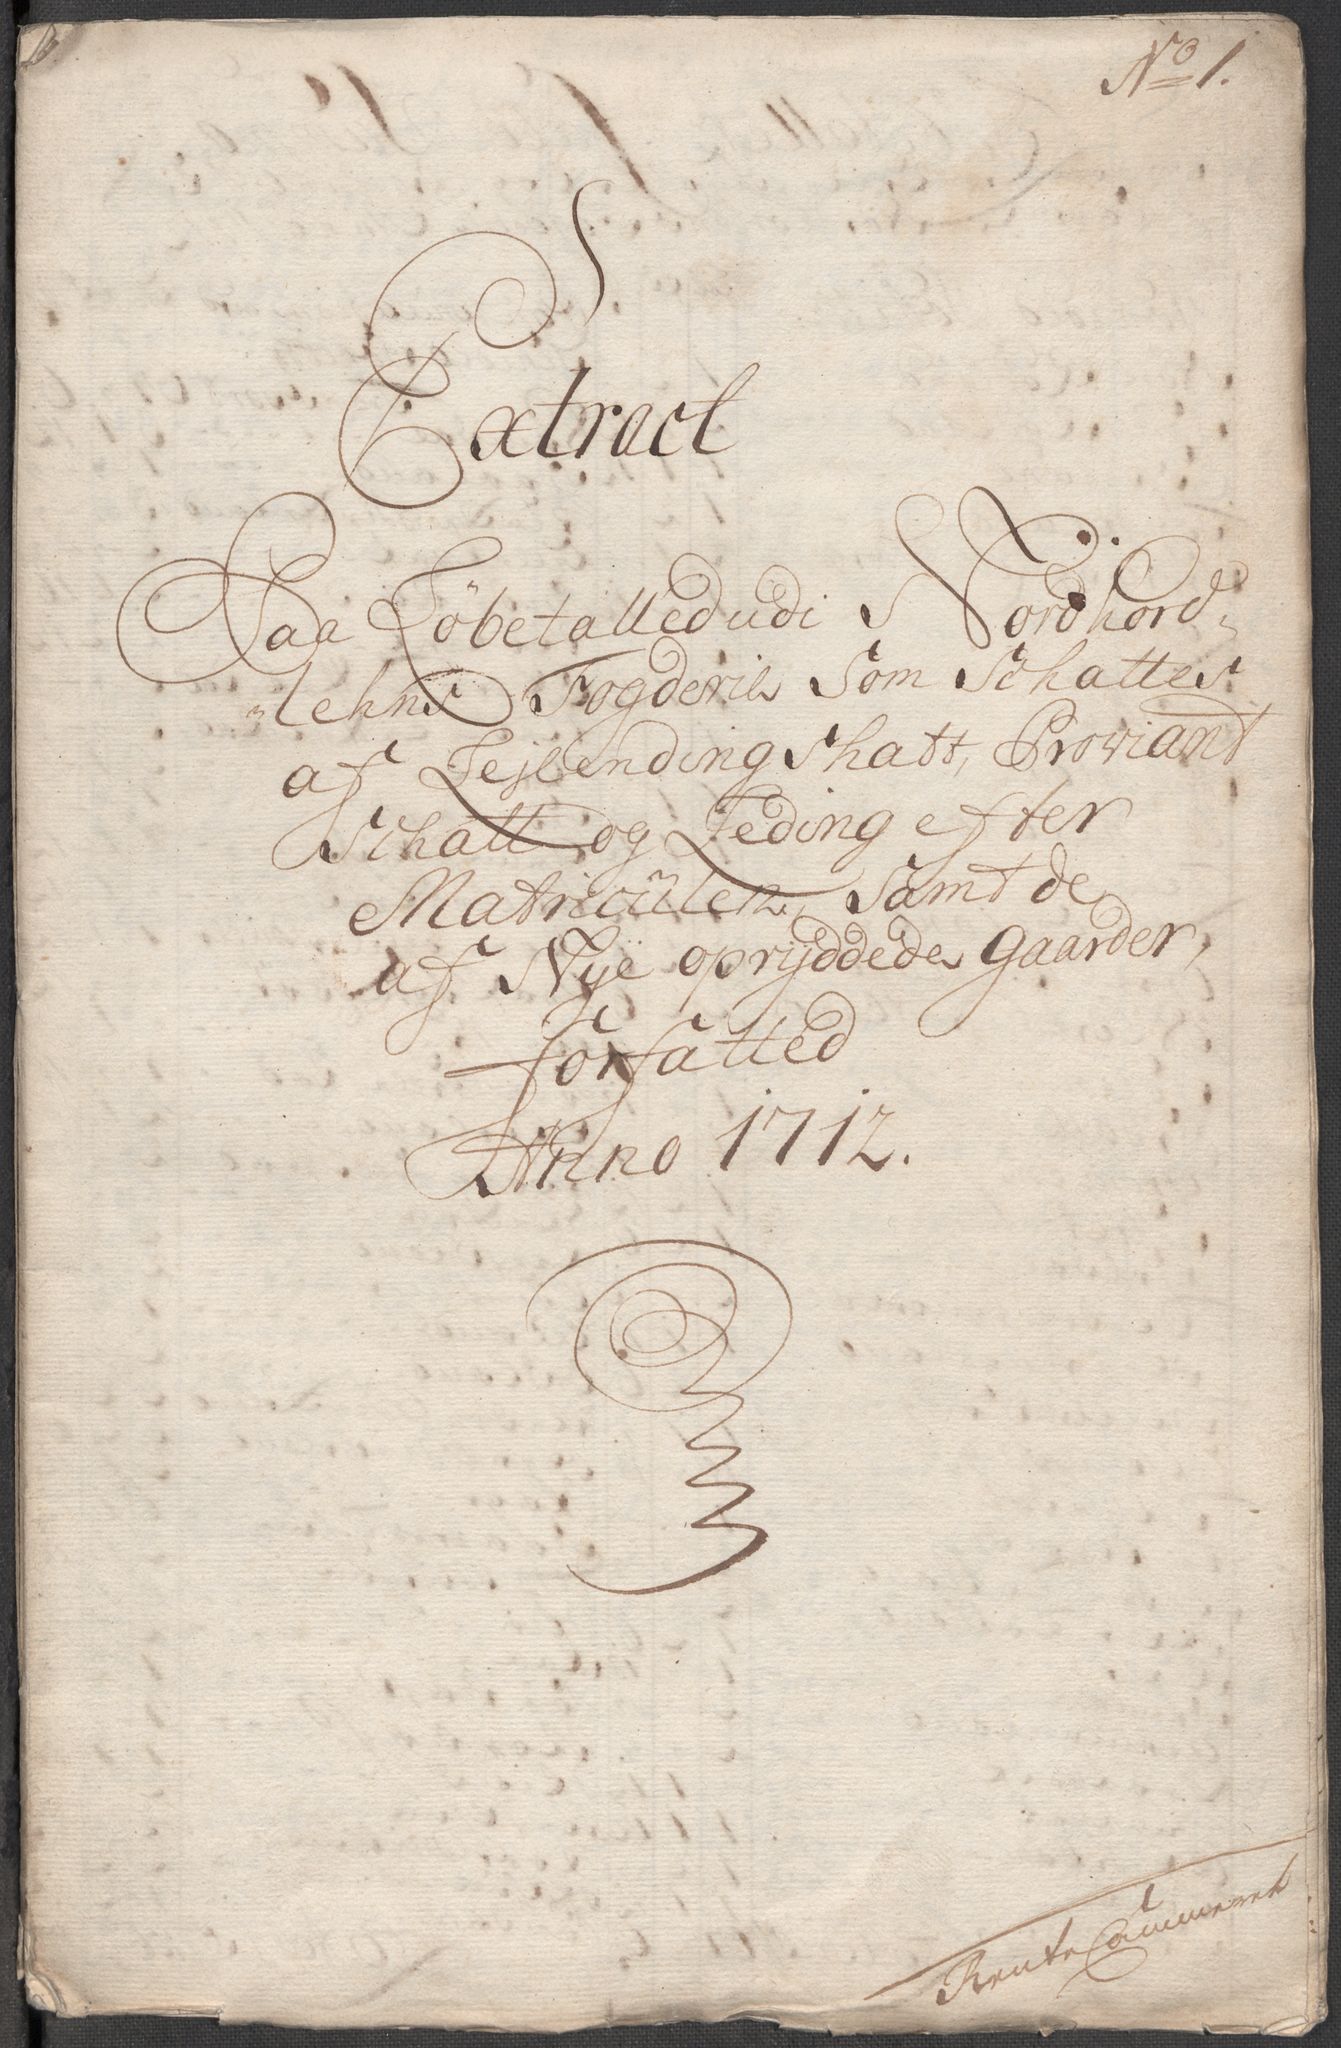 No 1.
Extract
Paa Löbetalled udi Nordhord-
lehns Fogderie Som Schattes
af Lejlending Shatt, Proviant
Schatt og Leding efter
Matriculen, Samt de
af Nÿe oprÿddede Gaarder,
forfatted
Anno 1712.
Rente Cammeret